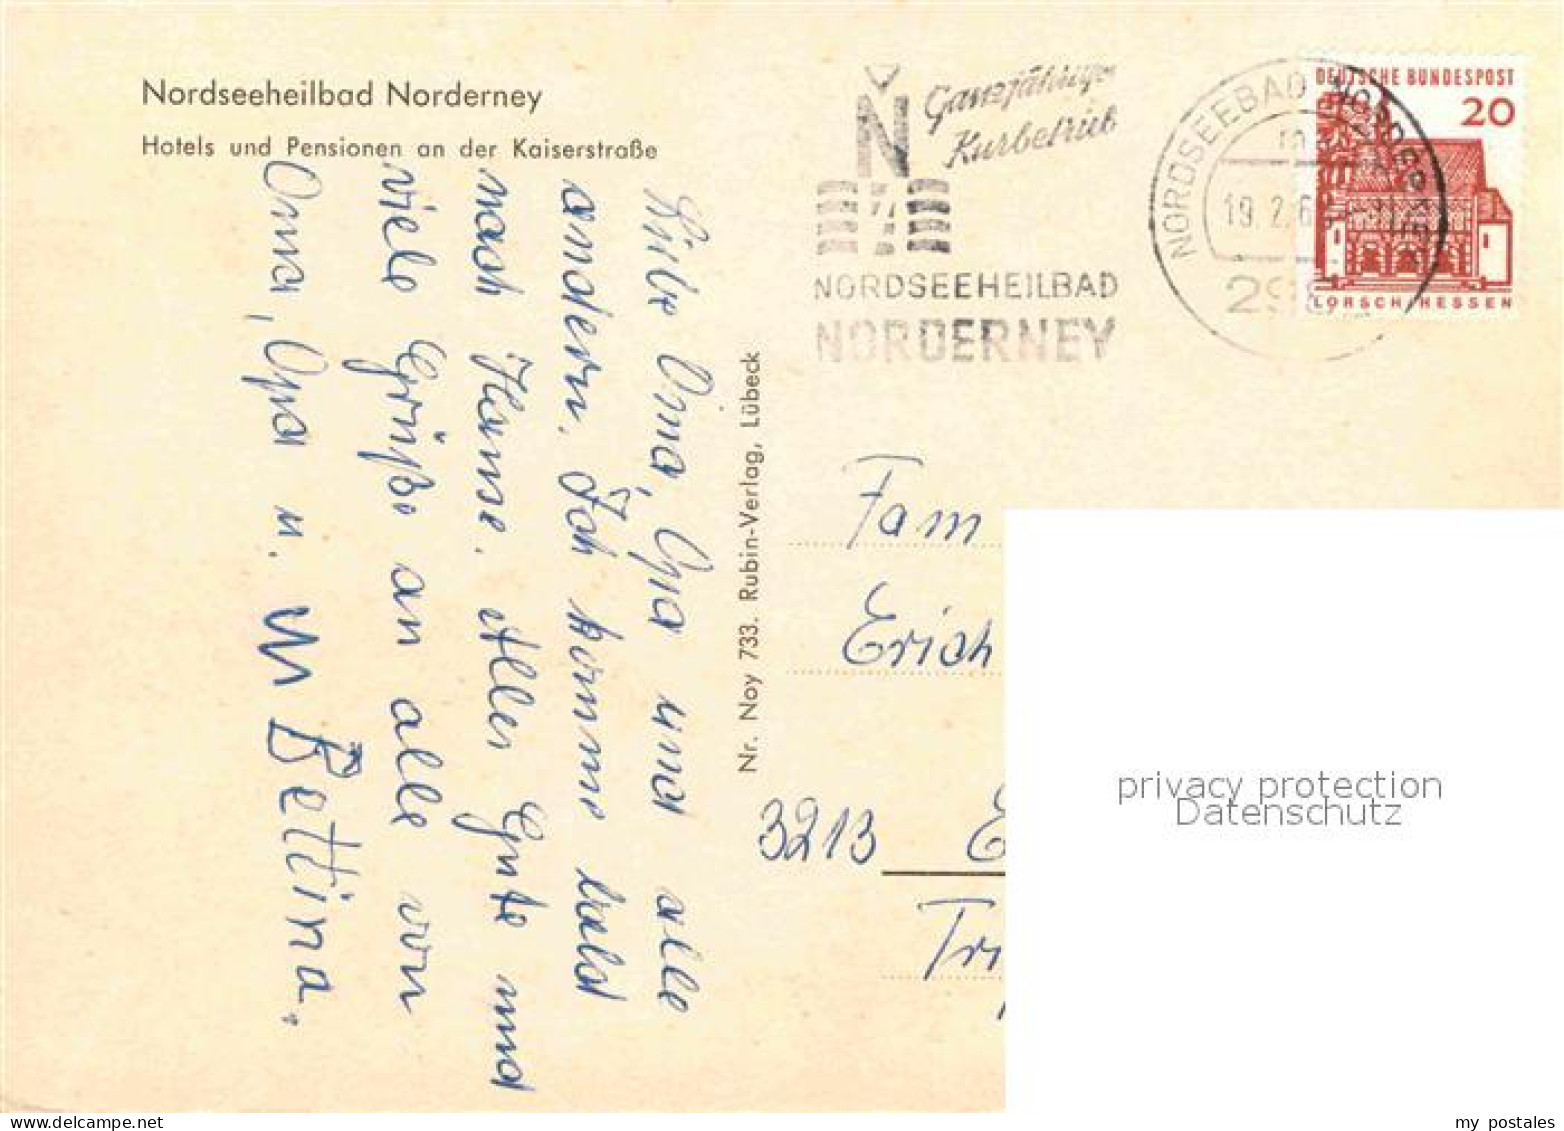 Nordseeheilbad Norderney
Hotels und Pensionen an der Kaiserstraße
Liebe Oma, Opa und alle
andern. Ich komme bald
nach Hause. Alles Gute und
viele Grüße an alle von
Oma, Opa u.
Bettina.
Nr. Noy 733. Rubin-Verlag, Lübeck
Ganzjähriger
Kurbetrieb
N
NORDSEEHEILBAD
NORDERNEY
NORDSEEBAD NORDERNEY
19.2.6
DEUTSCHE BUNDESPOST
20
LORSCH/HESSEN
Fam
Erich
3213 E
Tri
privacy protection
Datenschutz
my postales